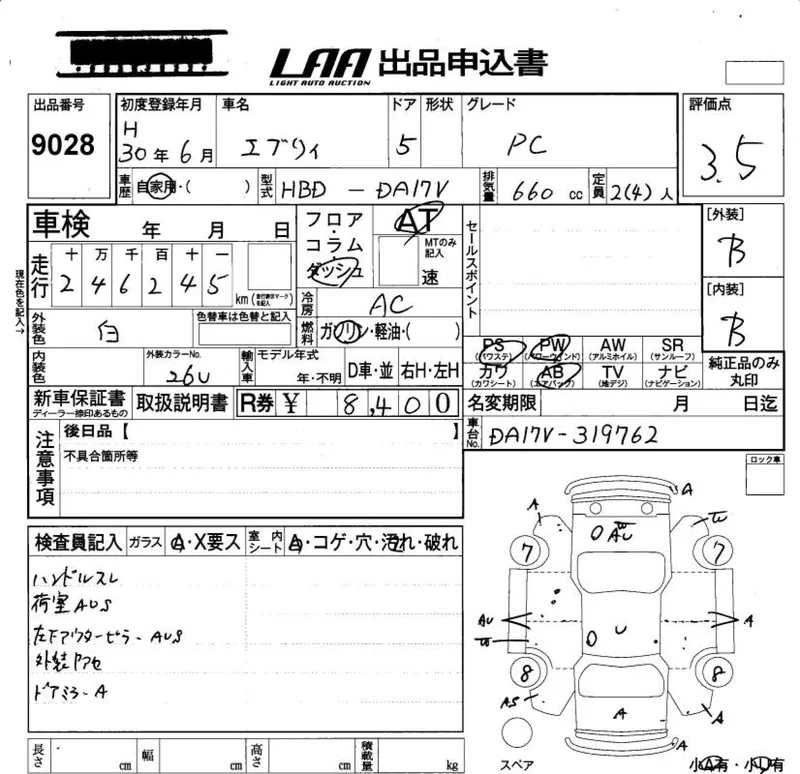 LAA 出品申込書
LIGHT AUTO AUCTION
出品番号 初度登録年月 車名 ドア 形状 グレード 評価点
9028 H 30年6月 エブリィ 5 PC 3.5
車歴 自家用・( ) 型式 HBD - DA17V 排気量 660 cc 定員 2(4)人
車検 年 月 日 フロア・コラム・ダッシュ AT MTのみ記入 速 セールスポイント [外装] B
現在色を記入→
走行 十 万 千 百 十 一
2 4 6 2 4 5 km (走行表示マークを記入)
冷房 AC [内装] B
外装色 白 色替車は色替と記入 燃料 ガソリン・軽油・( )
PS (パワステ) PW (パワーウインド) AW (アルミホイル) SR (サンルーフ)
内装色 外装カラーNo. 26U 輸入車 モデル年式 年・不明 D車・並 右H・左H
カワ (カワシート) AB (エアバッグ) TV (地デジ) ナビ (ナビゲーション) 純正品のみ丸印
新車保証書 ディーラー捺印あるもの 取扱説明書 R券 ¥ 8,400 名変期限 月 日迄
注意事項 後日品【 】 車台No. DA17V-319762
不具合箇所等
ロック車
検査員記入 ガラス A・X要ス 室内シート A・コゲ・穴・汚れ・破れ
ハンドルスレ
荷室AUS
左下アウターピラーAUS
外装アクセ
ドアミラーA
A
A W
AW
7 7
AU U A
W
8 8
AS A A
A
スペア 小A有・小D有
長さ cm 幅 cm 高さ cm 積載量 kg